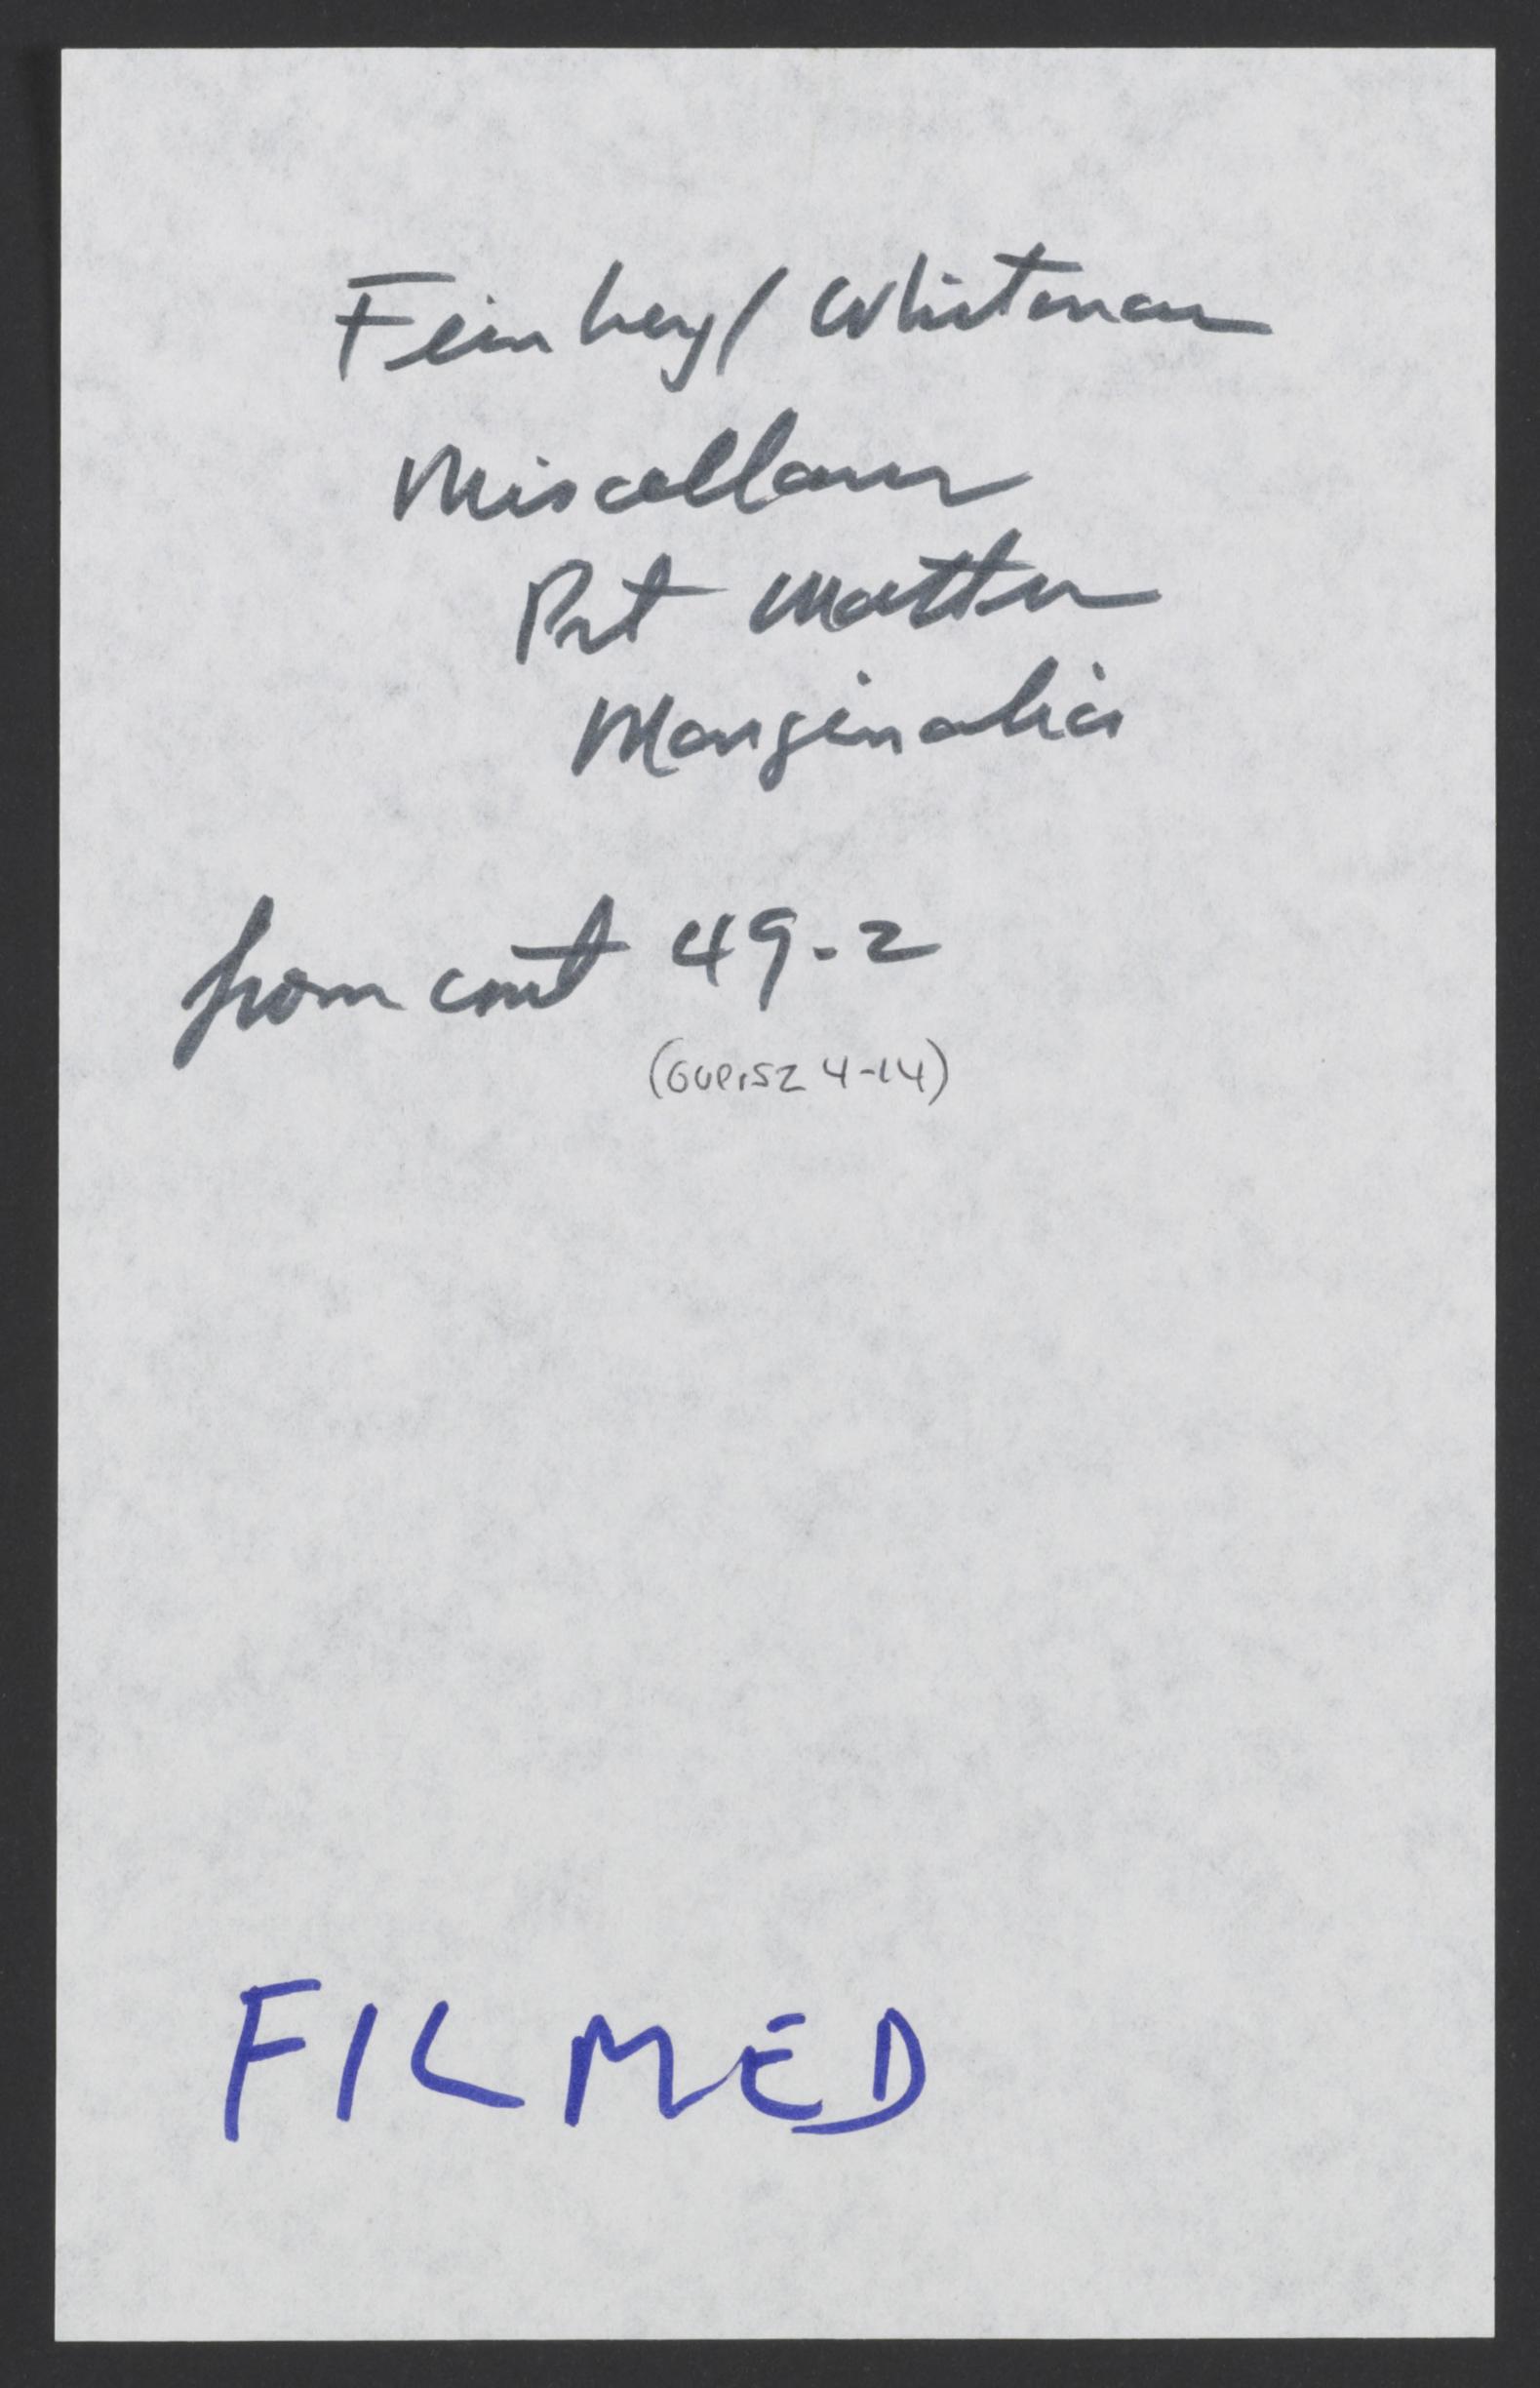 Feinberg/Whitman
Miscellany
Prt matter
Marginalia
from cont 49-2
(Oversz 4-14)
FILMED